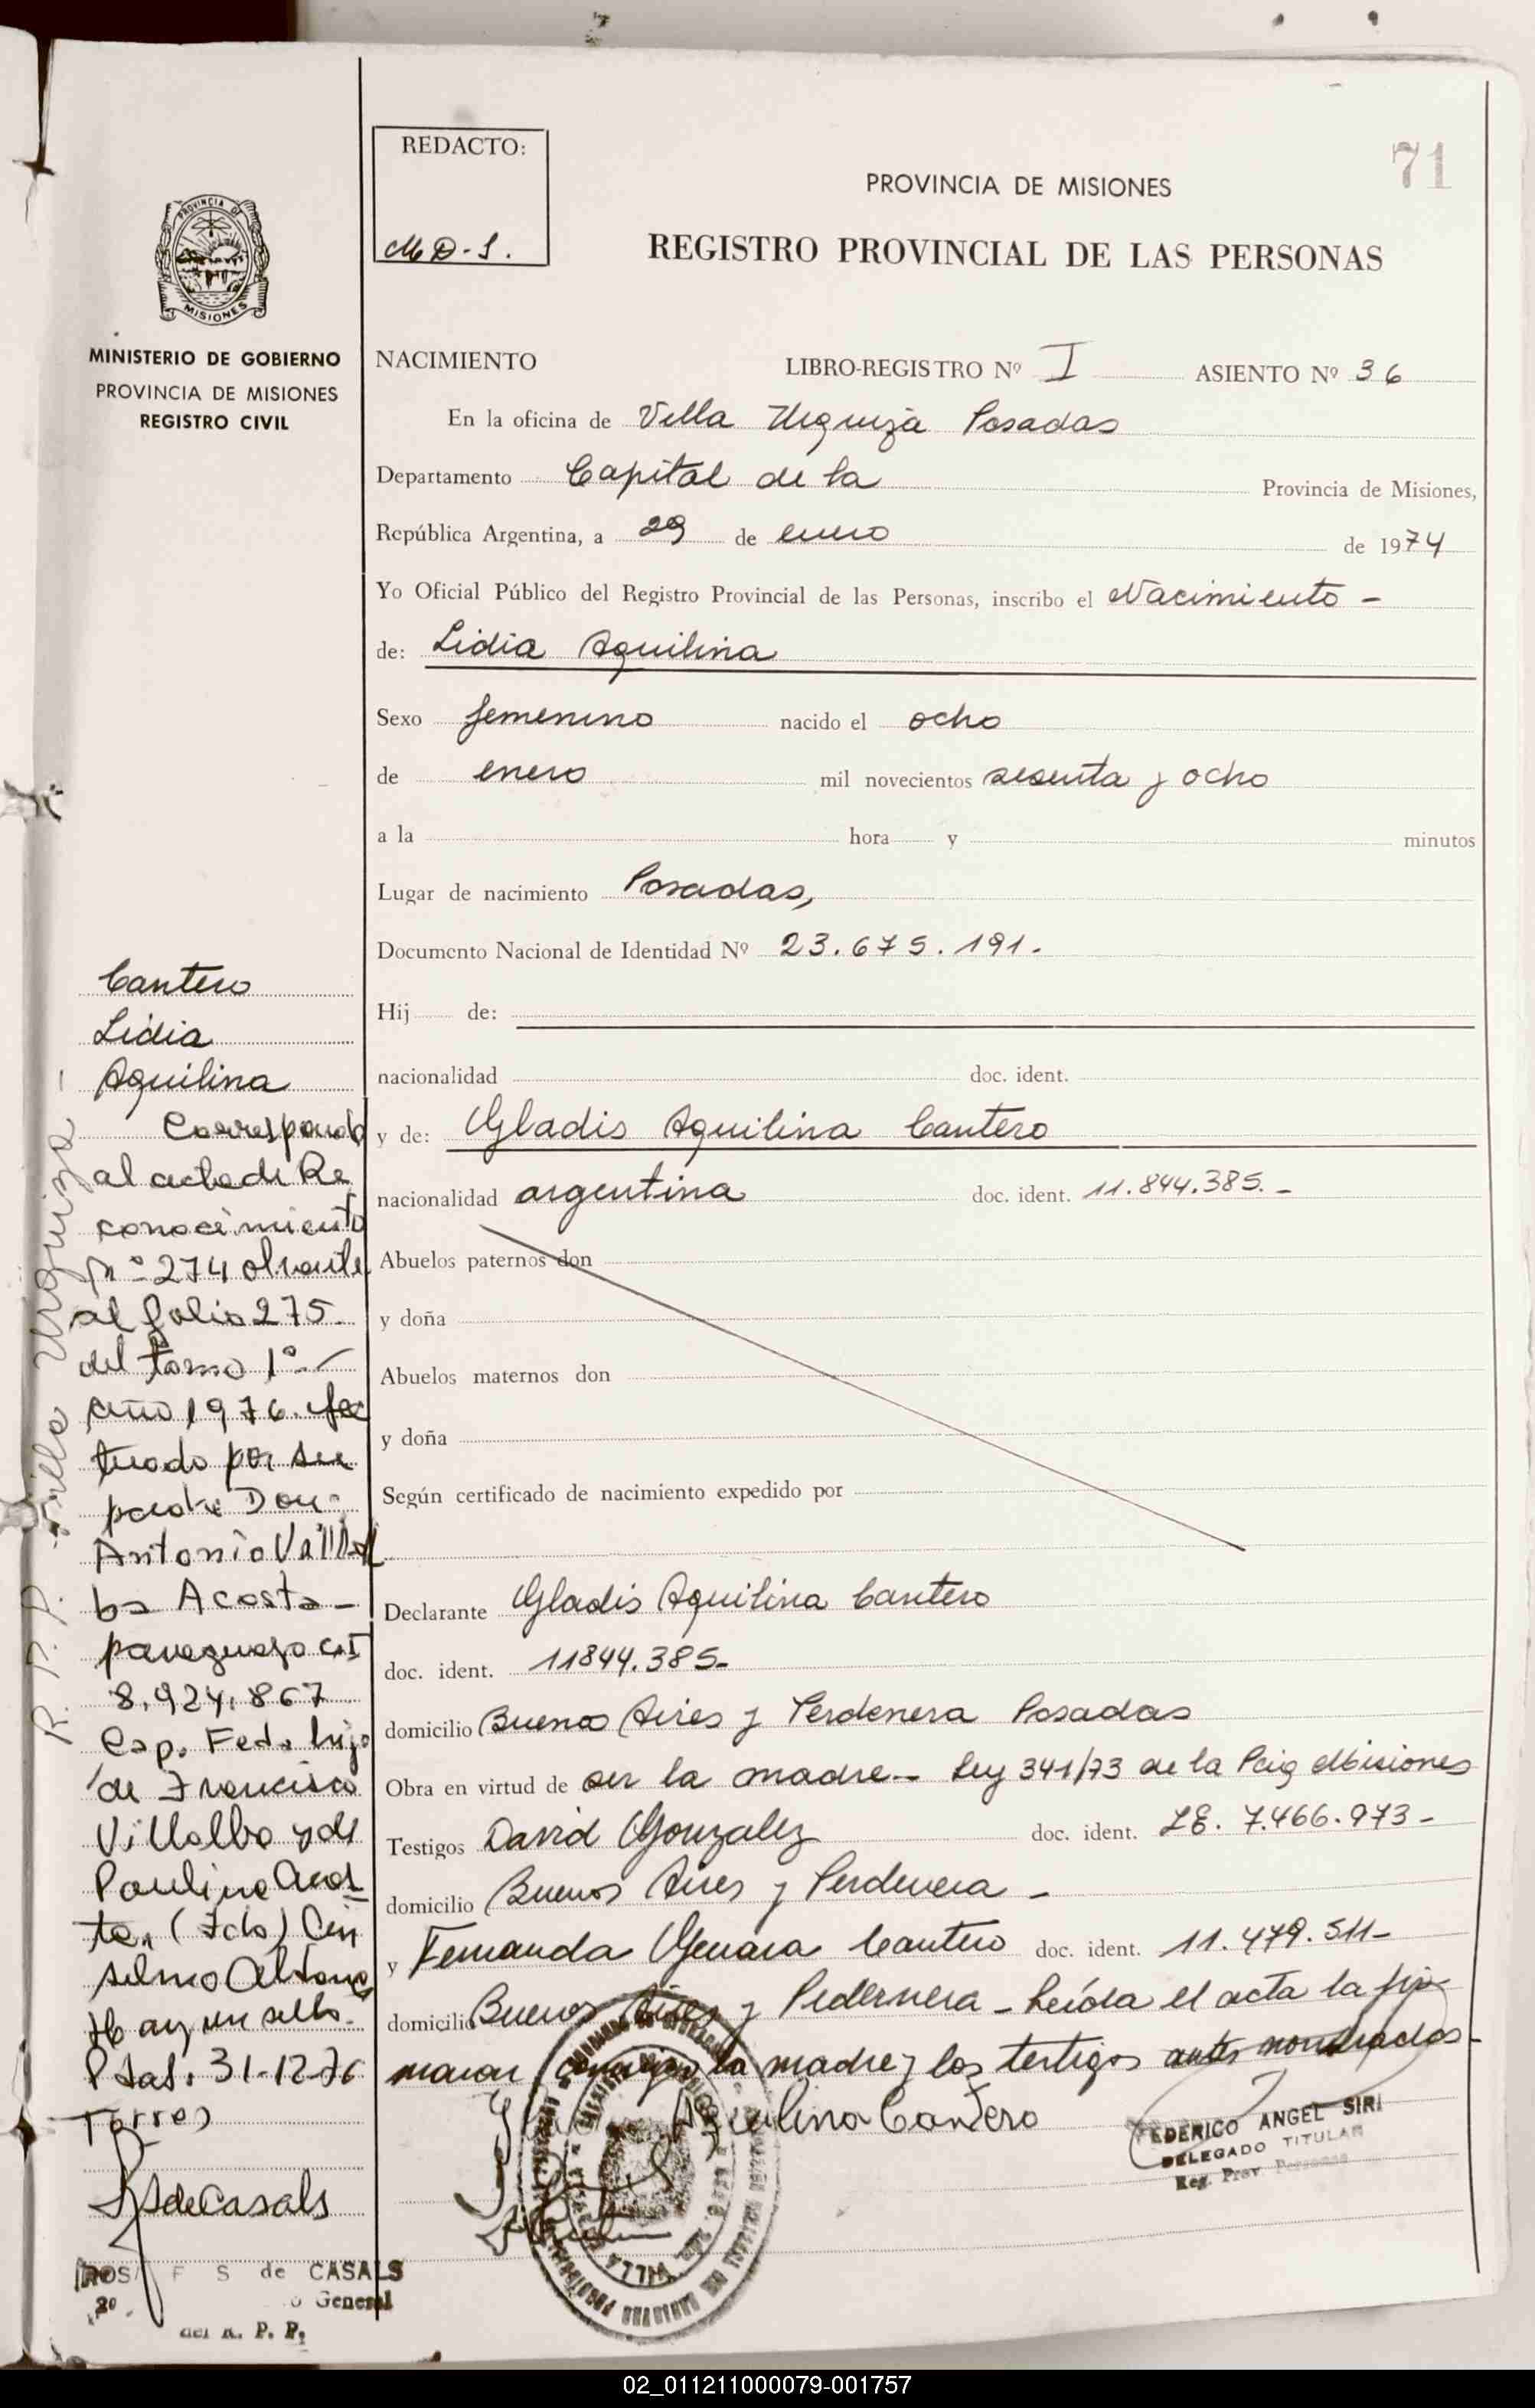 71
REDACTO:
MD-S.
PROVINCIA DE MISIONES
REGISTRO PROVINCIAL DE LAS PERSONAS
PROVINCIA DE
MISIONES
MINISTERIO DE GOBIERNO
PROVINCIA DE MISIONES
REGISTRO CIVIL
NACIMIENTO LIBRO-REGISTRO Nº I ASIENTO Nº 36
En la oficina de Villa Urquiza Posadas
Departamento Capital de la Provincia de Misiones,
República Argentina, a 29 de enero de 1974
Yo Oficial Público del Registro Provincial de las Personas, inscribo el Nacimiento -
de: Lidia Aquilina
Sexo femenino nacido el ocho
de enero mil novecientos sesenta y ocho
a la hora y minutos
Lugar de nacimiento Posadas,
Documento Nacional de Identidad Nº 23.675.191.
Hij de:
nacionalidad doc. ident.
y de: Gladis Aquilina Cantero
nacionalidad argentina doc. ident. 11.844.385.-
Abuelos paternos don
y doña
Abuelos maternos don
y doña
Según certificado de nacimiento expedido por
Declarante Gladis Aquilina Cantero
doc. ident. 11844.385-
domicilio Buenos Aires y Perdenera Posadas
Obra en virtud de ser la madre.- Ley 341/73 de la Pcia Misiones
Testigos David Gonzalez doc. ident. LE. 7.466.973-
domicilio Buenos Aires y Perdenera -
y Fernanda Genara Cantero doc. ident. 11.479.511-
domicilio Buenos Aires y Pedernera - Leída el acta la fir
maron conmigo la madre y los testigos antes nombrados-
Aquilina Cantero
FEDERICO ANGEL SIRI
DELEGADO TITULAR
Reg. Prov. Personas
Cantero
Lidia
Aquilina
Corresponde
al acta de Re
conocimiento
nº 274 obrante
al folio 275-
del tomo 1º-
año 1976. efec
tuado por su
padre Don-
Antonio Villal
ba Acosta-
paraguayo C.I
8.924.867
Cap. Fed. hijo
de Francisco
Villalba y de
Paulina Acos
ta. (Fdo)
Hay un sello.
Pdas. 31-12-76
Torres
R. P. P. Villa Urquiza -
deCasals
F S de CASALS
General
del R. P. P.
02_011211000079-001757